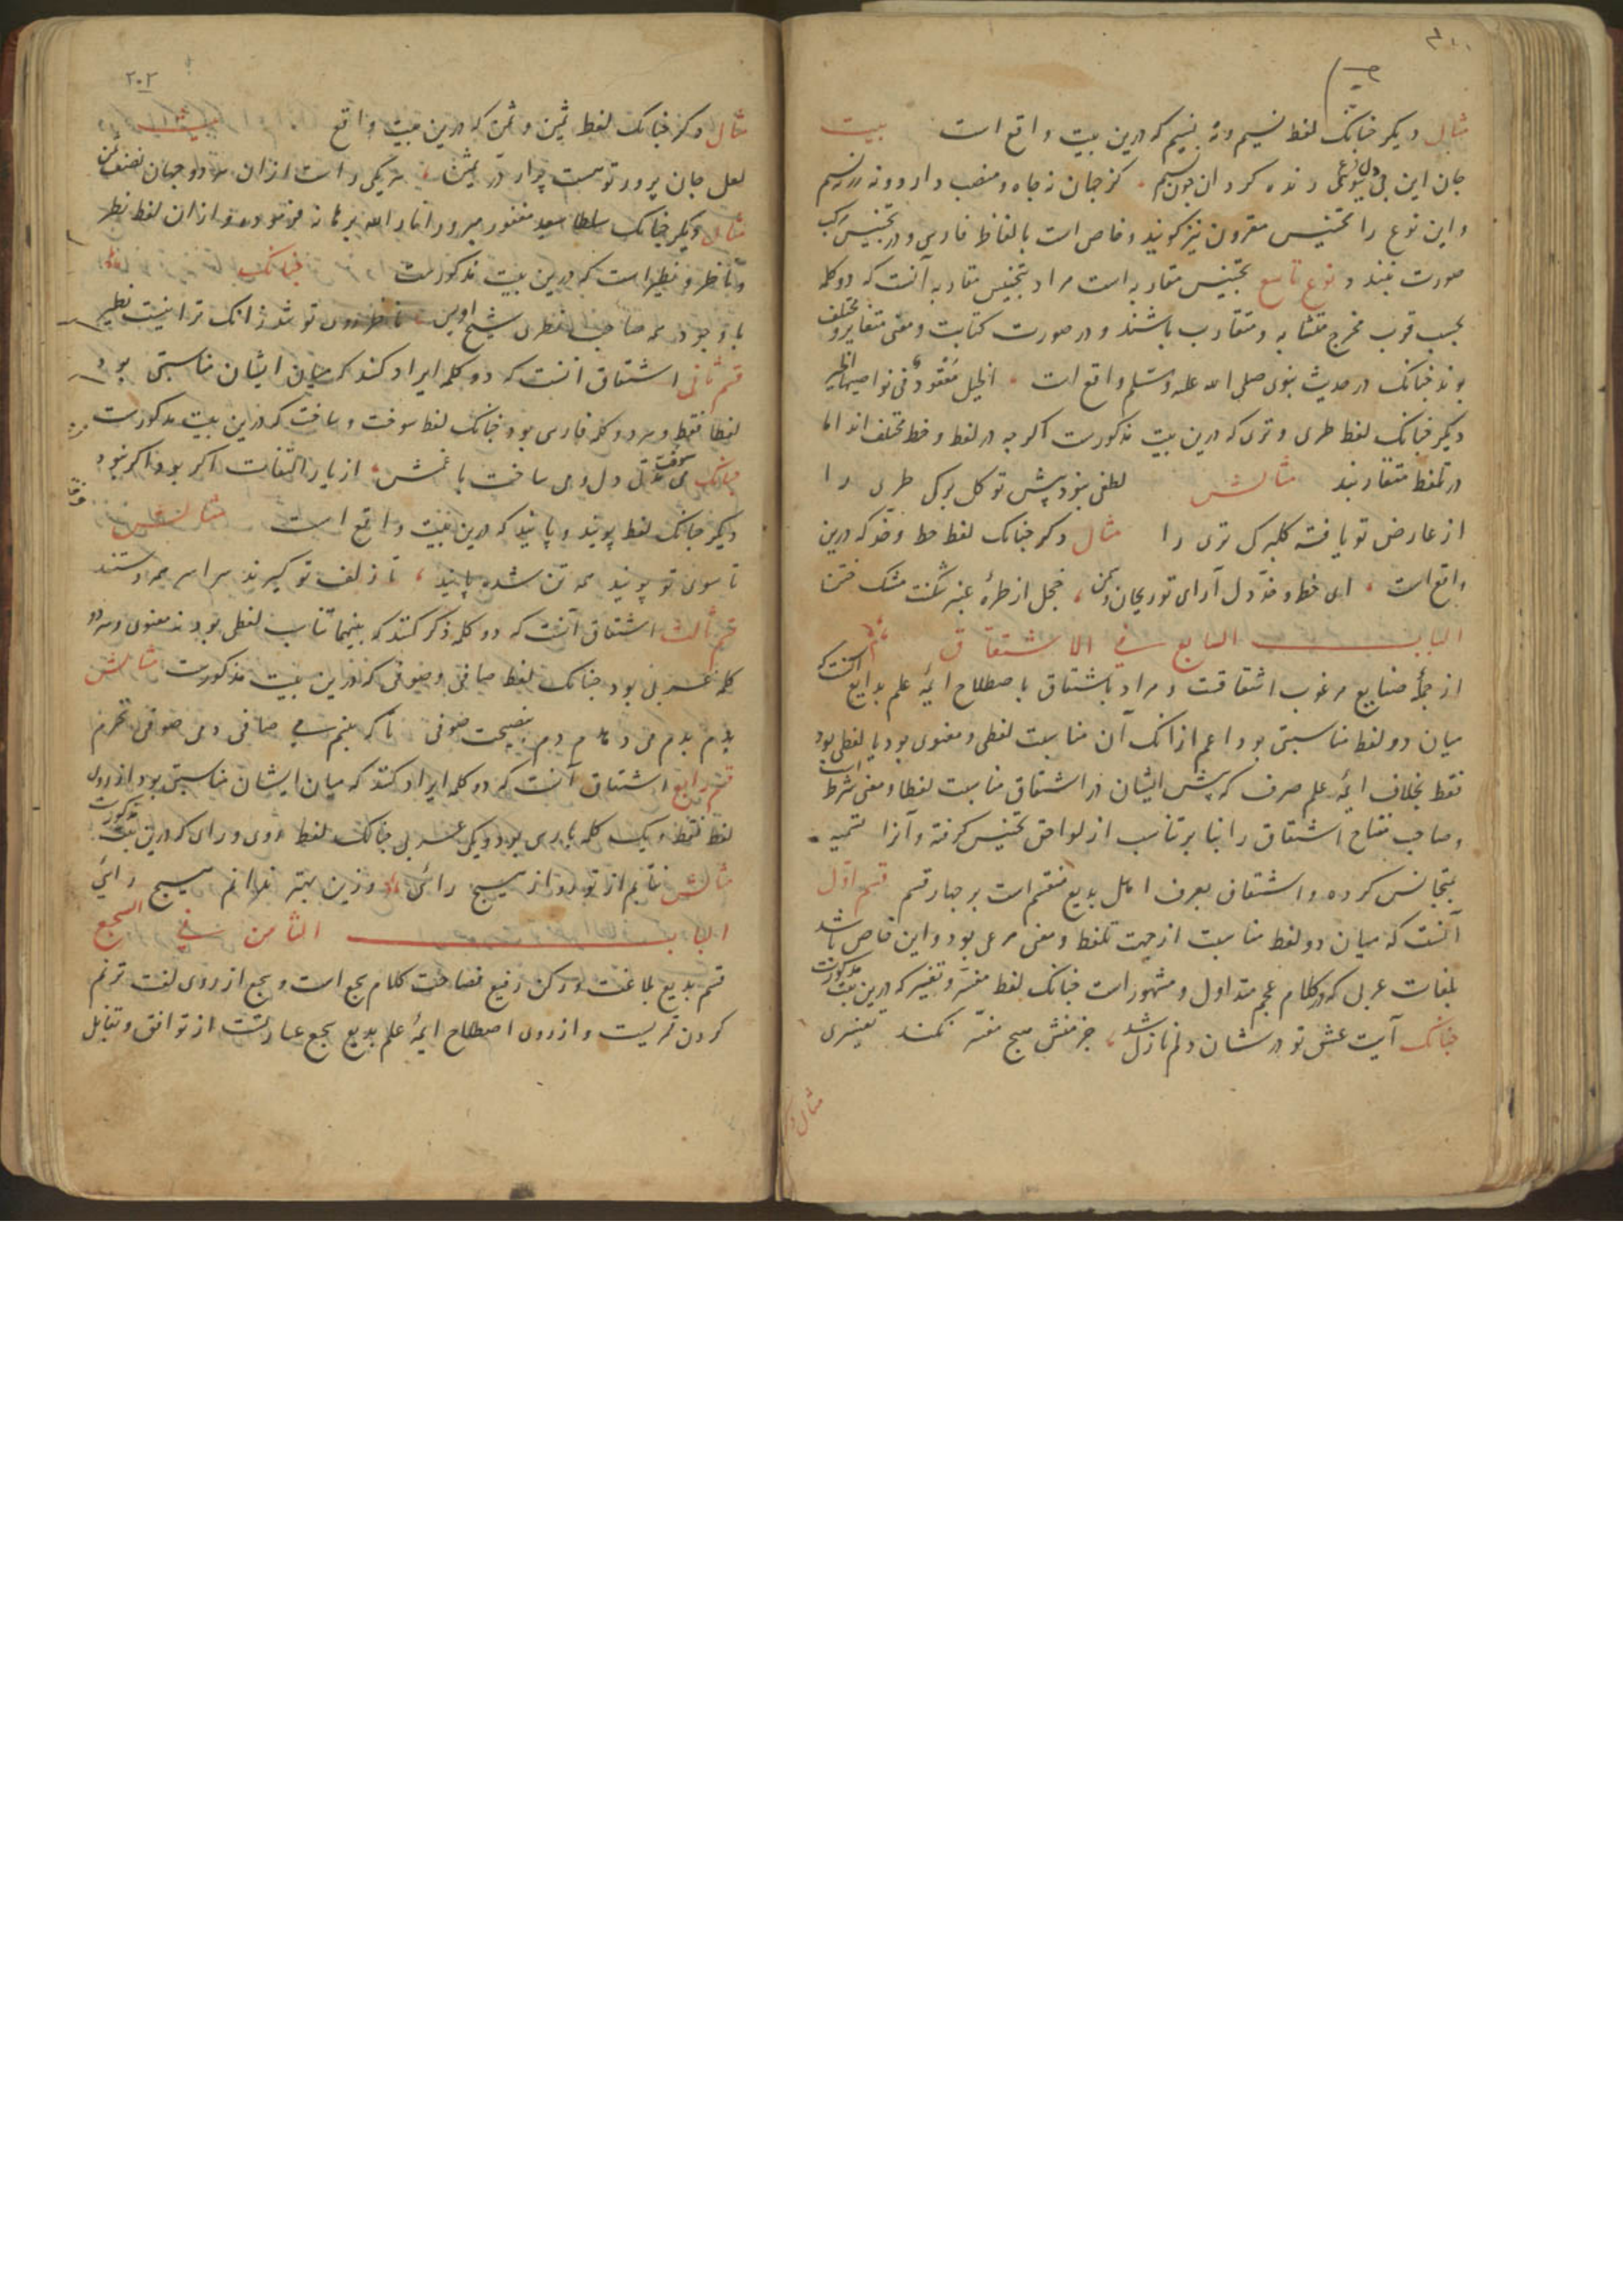 مثال دیگر چنانک لفظ نسیم ونه بنیم که درین بیت واقع است بیت
جان این زنده کرد آن چون نسیم کز جهان نه جاه و منصب دارد ونه زر نه سیم
و این نوع را تجنیس مقرون نیز گویند و خاص است بالفاظ فارسی و در تجنیس مرکب
صورت بندد و نوع تاسع تجنیس مقاربه است مراد بتجنیس مقاربه آنست که دو کلمه
بحسب قرب مخرج متشابه و متقارب باشند و در صورت کتابت و معنی متغایر و مختلف
بوند چنانک در حدیث نبوی صلی الله علیه وسلم واقع است الخیل معقود فی نواصیها الخیر
دیگر چنانک لفظ طری و تری که درین بیت مذکورست اگرچه در لفظ و خط مختلف اند اما
در تلفظ متقاربند مثالش لطفی نبود پیش تو گل برگ طری را
از عارض تو یافته گلبرگ تری را مثال دگر چنانک لفظ خط و خد که درین
واقع است ای خط و خد دل آرای تو ریحان و سمن خجل از طره عنبر شکنت مشک ختن
الباب السابع فی الاشتقاق
از جمله صنایع مرغوب اشتقاقست و مراد باشتقاق باصطلاح ائمه علم بدایع آنست که
میان دو لفظ مناسبتی بود اعم از آنک آن مناسبت لفظی و معنوی بود یا لفظی بود
فقط بخلاف ائمه علم صرف که پیش ایشان در اشتقاق مناسبت لفظا و معنی شرط است
و صاحب مفتاح اشتقاق را بنا بر تناسب از لواحق تجنیس گرفته و آنرا تسمیه
بتجانس کرده و اشتقاق بعرف اهل بدیع منقسم است بر چهار قسم قسم اول
آنست که میان دو لفظ مناسبت از جهت تلفظ و معنی مرعی بود و این خاص باشد
بلغات عربی که در کلام عجم متداول و مشهور است چنانک لفظ مفسر و تفسیر که درین بیت مذکورست
چنانک آیت عشق تو در شان دلم نازل شد جز غمش هیچ مفسر نکند تفسیری
مثال دگر
۲۰۲
مثال دگر چنانک لفظ ثمین و ثمن که درین بیت واقع
لعل جان پرور تو هست چو در ثمین
مثال دیگر چنانک سلطان سعید مغفور مبرور انار الله برهانه فرموده و از آن لفظ نظر
و ناظر و نظیر است که درین بیت مذکورست چنانک
با وجود همه صاحب نظری شیخ اویس ناظر روی تو شد زانک ترا نیست نظیر
قسم ثانی اشتقاق آنست که دو کلمه ایراد کنند که میان ایشان مناسبتی بود
لفظا فقط و هر دو کلمه فارسی بود چنانک لفظ سوخت و ساخت که درین بیت مذکورست
چنانک می سوخت دل و می ساخت با غمش از یار التفات اگر بود اگر نبود
دیگر چنانک لفظ پویند و پایند که درین بیت واقع است مثالش
تا سوی تو پویند همه تن شده پایند تا زلف تو گیرند سراسر همه دستند
قسم ثالث اشتقاق آنست که دو کلمه ذکر کنند که بینهما تناسب لفظی بود نه معنوی و هر دو
کلمه عربی بود چنانک لفظ صافی و صوفی که درین بیت مذکورست مثالش
بدم بدم می دمادم دم نصیحت صوفی تا که بینم می صافی و می صوفی نخرم
قسم رابع اشتقاق آنست که دو کلمه ایراد کنند که میان ایشان مناسبتی بود از روی
لفظ فقط و یک کلمه پارسی بود و یکی عربی چنانک لفظ روی و رای که درین بیت مذکورست
مثالش نتابم از تو رو از هیچ رائی وزین بهتر ندانم هیچ رائی
الباب الثامن فی السجع
قسم بدیع بلاغت و رکن رفیع فصاحت کلام سجع است و سجع از روی لغت ترنم
کردن قمریست و از روی اصطلاح ائمه علم بدیع سجع عبارتست از توافق و تقابل